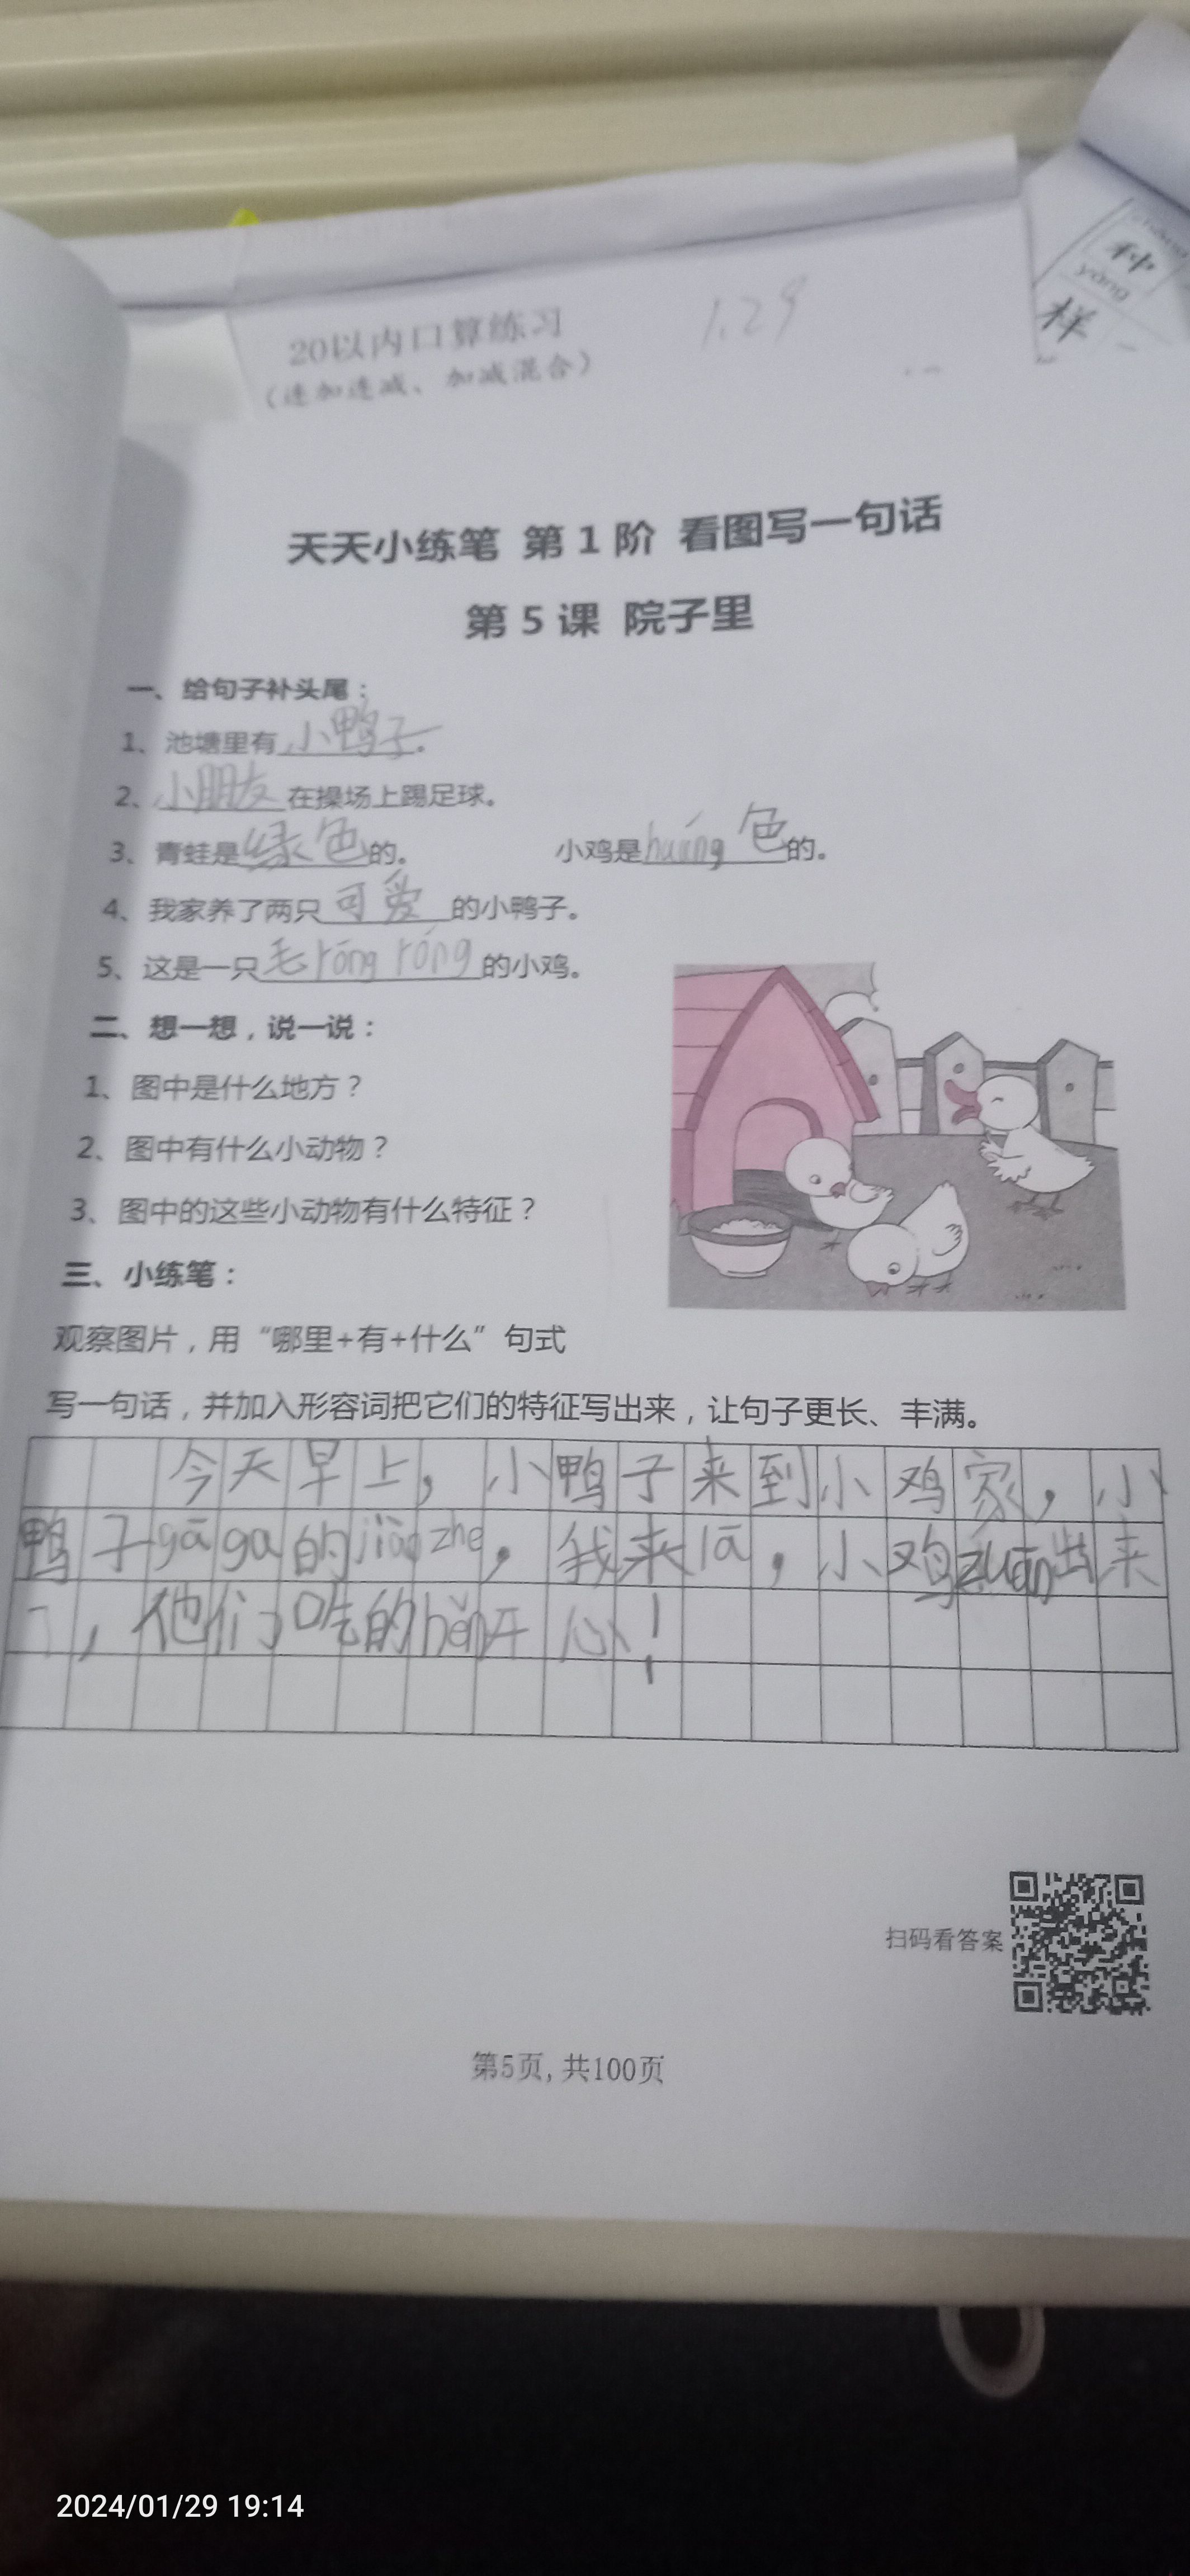 种
yàng
样
20以内口算练习
1.29
（连加连减、加减混合）
天天小练笔 第1阶 看图写一句话
第5课 院子里
一、给句子补头尾：
1、池塘里有小鸭子。
2、小朋友在操场上踢足球。
3、青蛙是绿色的。 小鸡是huáng色的。
4、我家养了两只可爱的小鸭子。
5、这是一只毛róng róng的小鸡。
二、想一想，说一说：
1、图中是什么地方？
2、图中有什么小动物？
3、图中的这些小动物有什么特征？
三、小练笔：
观察图片，用“哪里+有+什么”句式
写一句话，并加入形容词把它们的特征写出来，让句子更长、丰满。
今天早上，小鸭子来到小鸡家，小
鸭子gāga的jiào zhe，我来lā，小鸡zuān出来
了，他们吃的hěn开心！
扫码看答案
第5页,共100页
2024/01/29 19:14